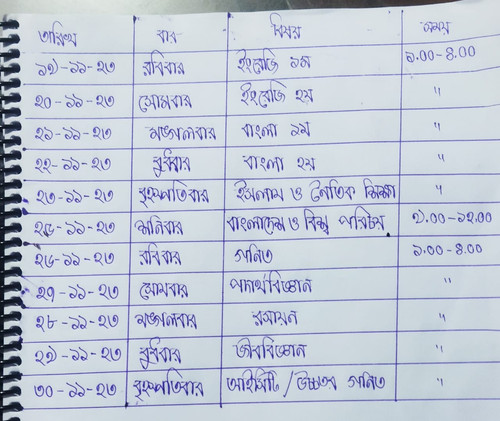 তারিখ বার বিষয় সময়
১৯-১১-২৩ রবিবার ইংরেজি ১ম ১.০০-৪.০০
২০-১১-২৩ সোমবার ইংরেজি ২য় "
২১-১১-২৩ মঙ্গলবার বাংলা ১ম "
২২-১১-২৩ বুধবার বাংলা ২য় "
২৩-১১-২৩ বৃহস্পতিবার ইসলাম ও নৈতিক শিক্ষা "
২৫-১১-২৩ শনিবার বাংলাদেশ ও বিশ্ব পরিচয় ৯.০০-১২.০০
২৬-১১-২৩ রবিবার গনিত ১.০০-৪.০০
২৭-১১-২৩ সোমবার পদার্থবিজ্ঞান "
২৮-১১-২৩ মঙ্গলবার রসায়ন "
২৯-১১-২৩ বুধবার জীববিজ্ঞান "
৩০-১১-২৩ বৃহস্পতিবার আইসিটি/উচ্চতর গনিত "